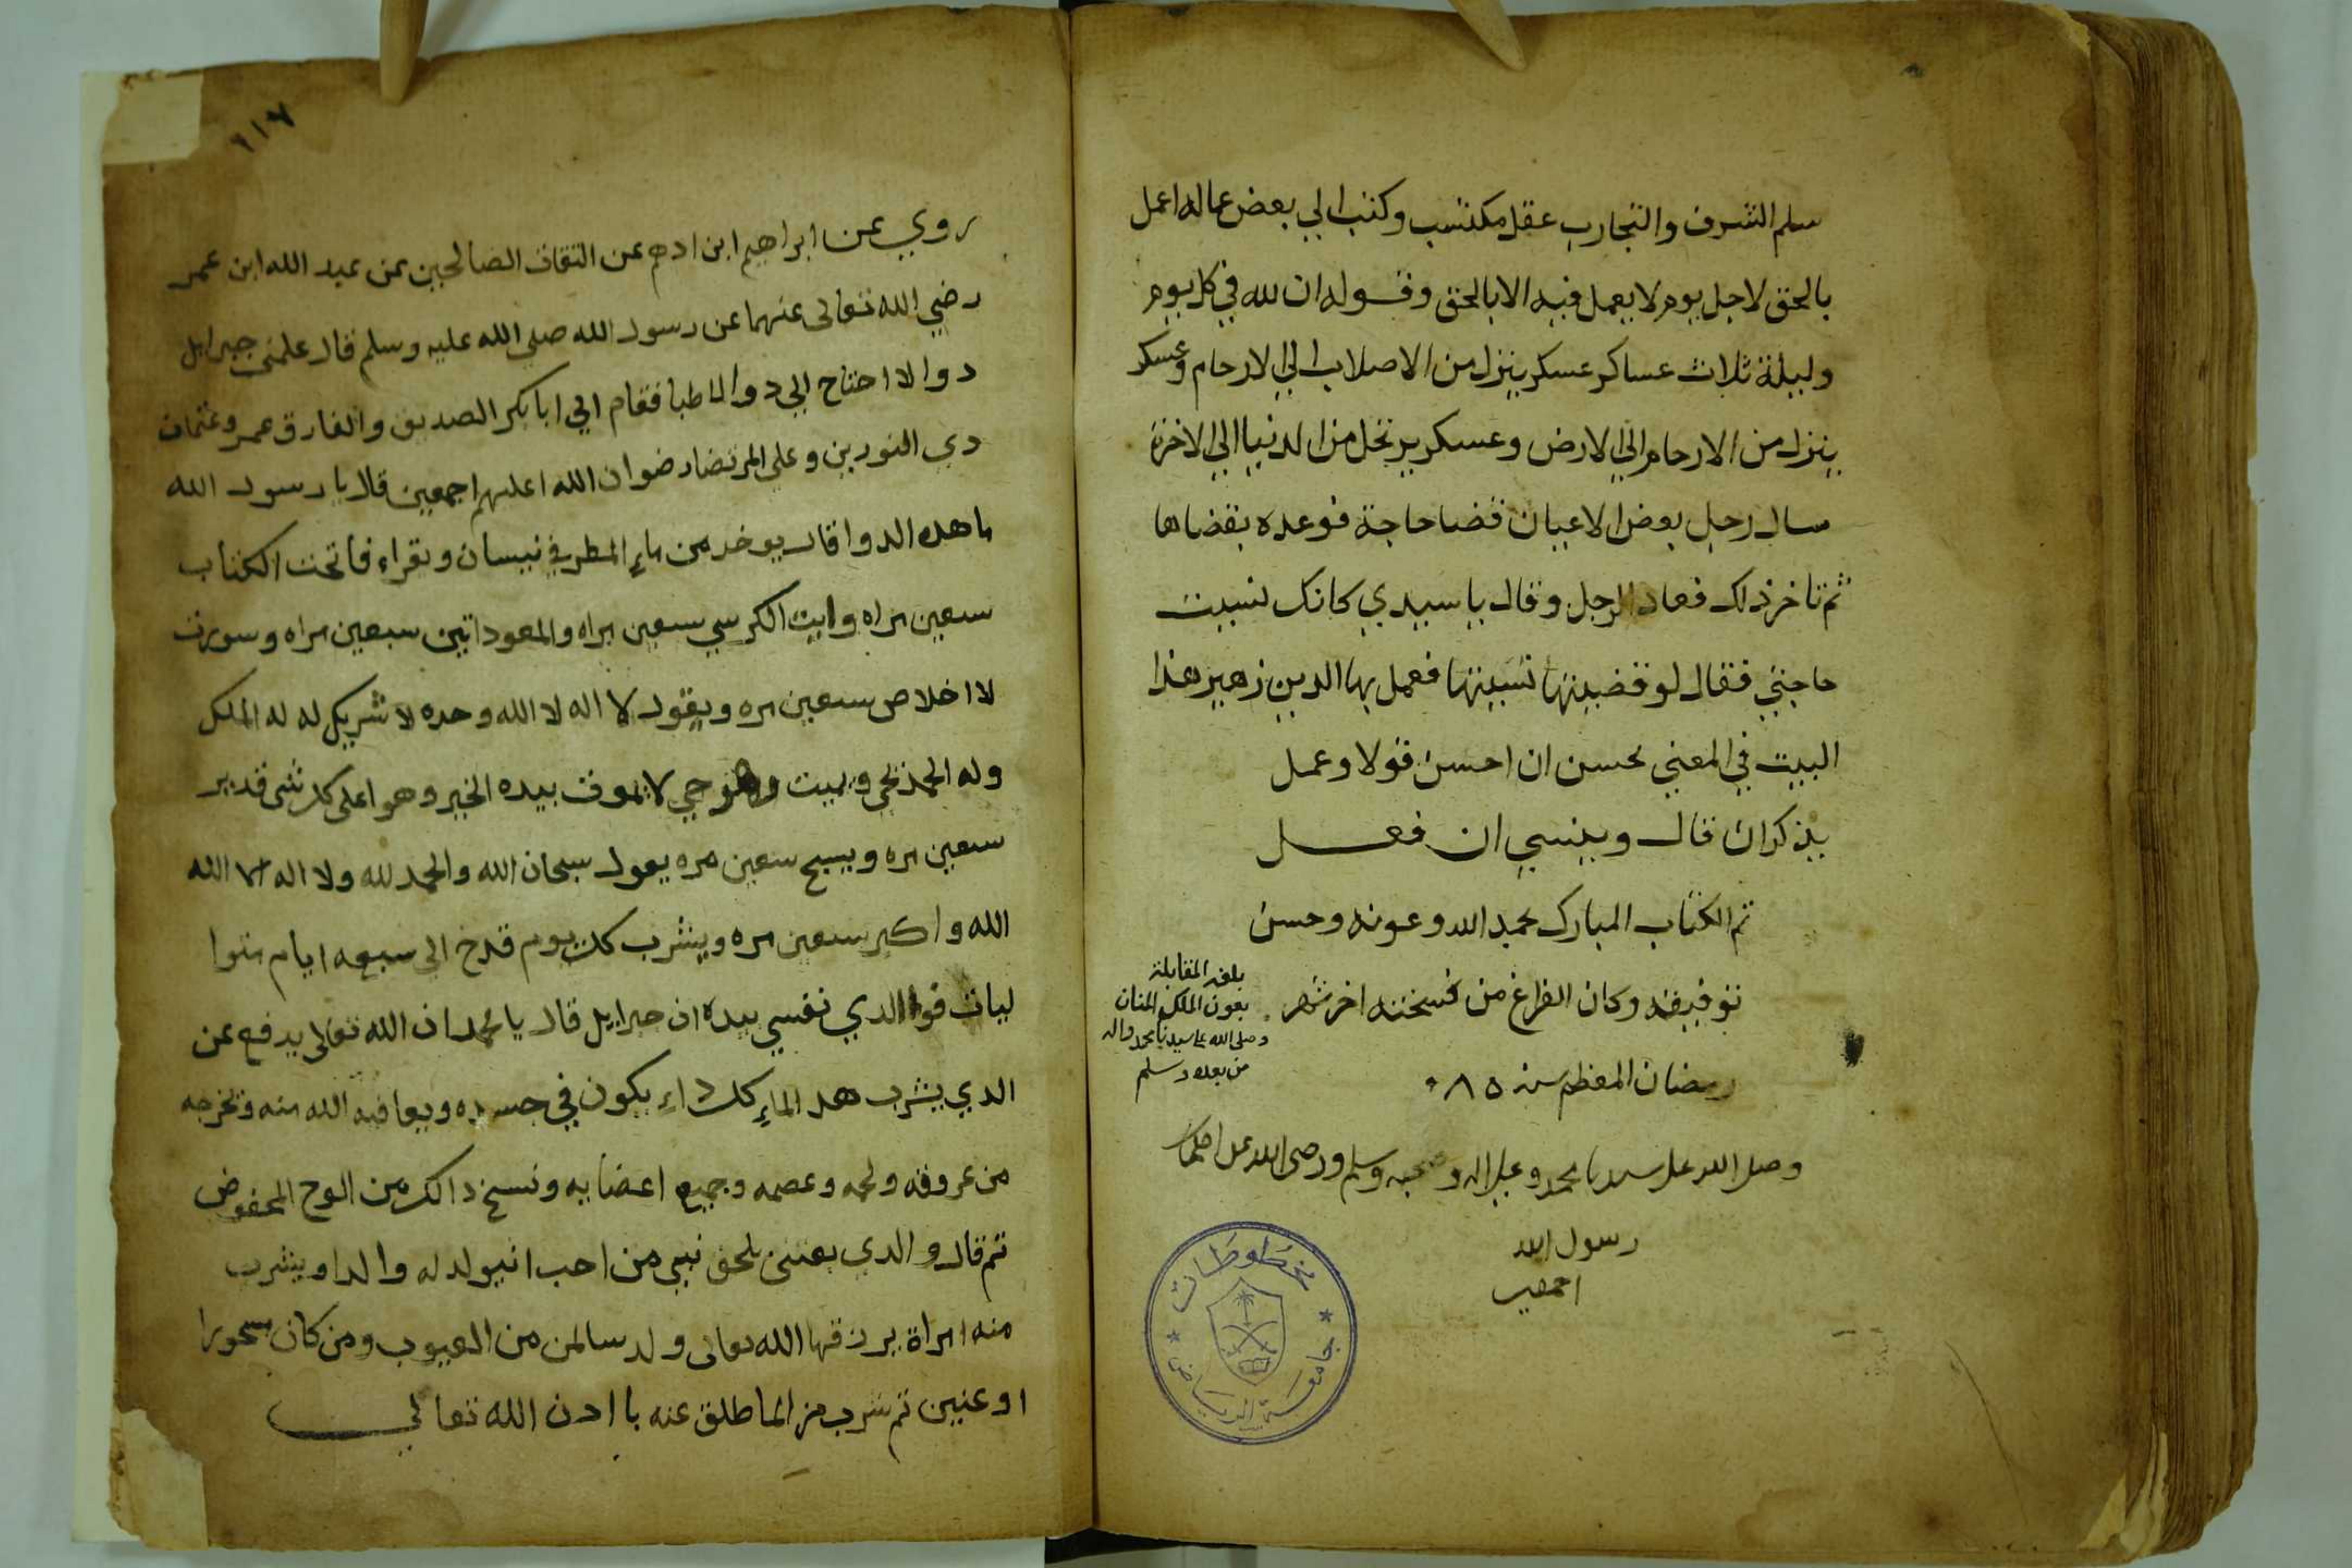 سلم الشرف والتجارب عقل مكتسب وكتب الي بعض عماله اعمل
بالحق لاجل يوم لا يعمل فيه الا بالحق وقوله ان لله في كل يوم
وليلة ثلاث عساكر عسكر ينزل من الاصلاب الي الارحام وعسكر
ينزل من الارحام الي الارض وعسكر يرتحل من الدنيا الي الاخرة
سال رجل بعض الاعيان قضا حاجة فوعده بقضاها
ثم تاخر ذلك فعاد الرجل وقال يا سيدي كانك نسيت
حاجتي فقال لو قضيتها نسيتها فعمل بها الدين زهير هذا
البيت في المعني يحسن ان احسن قولا وعمل
يذكر ان قال وينسي ان فعل
تم الكتاب المبارك بحمد الله وعونه وحسن
توفيقه وكان الفراغ من نسخته اخر شهر
رمضان المعظم سنة ٨٥٠
وصلى الله على سيدنا محمد وعلى اله وصحبه وسلم ورضى الله عن اصحاب
رسول الله
اجمعين
بلغه المقابلة
بعون الملك المنان
وصلى الله على سيدنا محمد واله
من بعده وسلم
مخطوطات
جامعة الرياض
٢١٧
روي عن ابراهيم ابن ادهم عن الثقاة الصالحين عن عبد الله ابن عمر
رضي الله تعالى عنهما عن رسول الله صلي الله عليه وسلم قال علمني جبرايل
دوا لا احتاح الي دوا الاطبا فقام الي ابا بكر الصديق والفارق عمر وعثمان
دي النورين وعلي المرتضا رضوان الله اعليهم اجمعين قال يا رسول الله
ما هده الدوا قال يوخد من ماء المطر في نيسان ويقراء فاتحت الكتاب
سبعين مراه وايت الكرسي سبعين مراه والمعوداتين سبعين مراه وسورت
لاخلاص سبعين مره ويقول لا اله لا الله وحده لا شريك له له الملك
وله الحمد يحي ويميت وهو حي لا يموت بيده الخير وهو اعلى كل شي قدير
سبعين مره ويسبح سبعين مره يقول سبحان الله والحمد لله ولا اله الا الله
الله واكبر سبعين مره ويشرب كل يوم قدح الى سبعه ايام متوا
ليات فوا الدي نفسي بيده ان جبرايل قال يا محمد ان الله تعالى يدفع عن
الدي يشرب هد الماء كل داء يكون في جسده ويعافيه الله منه وتخرجه
من عروقه ولحمه وعصمه وجميع اعضايه ونسخ دالك من الوح المحفوض
تم قال والدي بعتني بلحق نبي من احب انيولد له والد او يشرب
منه امراة يرزقها الله تعالى ولد سالمن من العيوب ومن كان مسحورا
او عنين تم شرب من الما طلق عنه با ادن الله تعالي